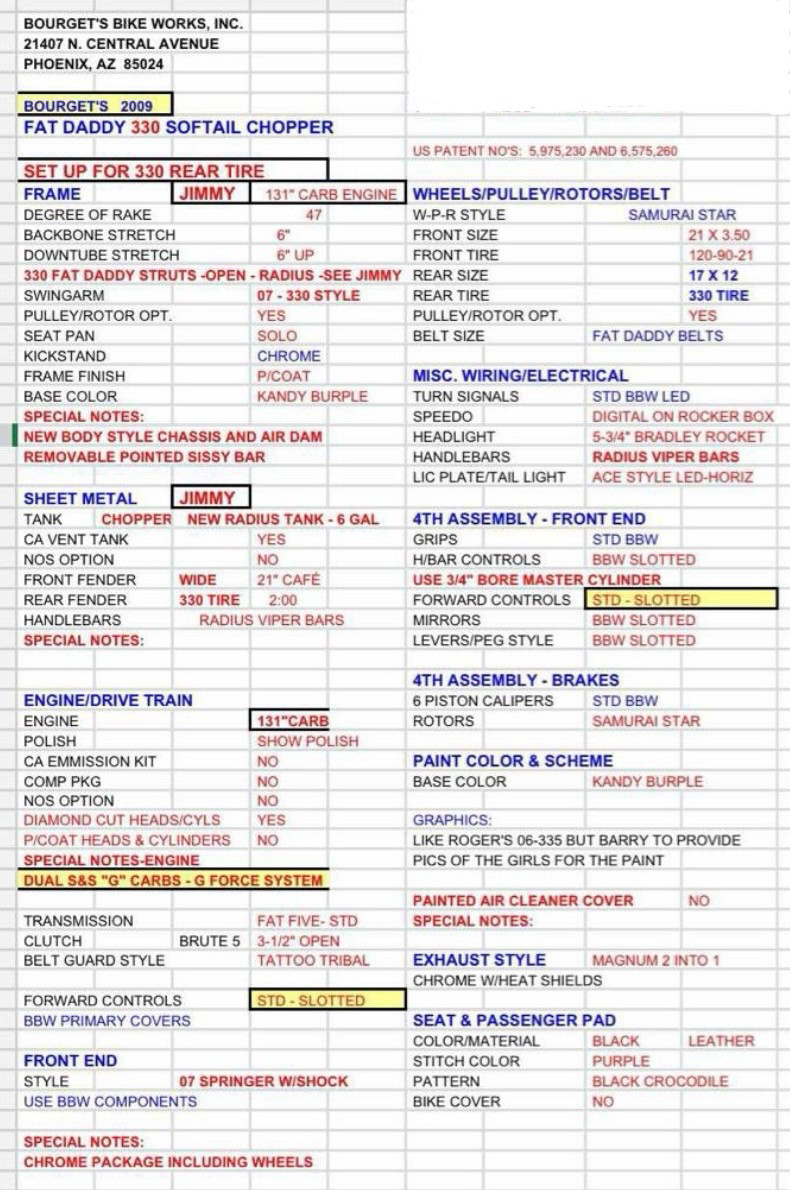 BOURGET'S BIKE WORKS, INC.
21407 N. CENTRAL AVENUE
PHOENIX, AZ 85024
BOURGET'S 2009
FAT DADDY 330 SOFTAIL CHOPPER
SET UP FOR 330 REAR TIRE
FRAME JIMMY 131" CARB ENGINE
DEGREE OF RAKE 47
BACKBONE STRETCH 6"
DOWNTUBE STRETCH 6" UP
330 FAT DADDY STRUTS -OPEN - RADIUS -SEE JIMMY
SWINGARM 07 - 330 STYLE
PULLEY/ROTOR OPT. YES
SEAT PAN SOLO
KICKSTAND CHROME
FRAME FINISH P/COAT
BASE COLOR KANDY BURPLE
SPECIAL NOTES:
NEW BODY STYLE CHASSIS AND AIR DAM
REMOVABLE POINTED SISSY BAR
SHEET METAL JIMMY
TANK CHOPPER NEW RADIUS TANK - 6 GAL
CA VENT TANK YES
NOS OPTION NO
FRONT FENDER WIDE 21" CAFÉ
REAR FENDER 330 TIRE 2:00
HANDLEBARS RADIUS VIPER BARS
SPECIAL NOTES:
ENGINE/DRIVE TRAIN
ENGINE 131"CARB
POLISH SHOW POLISH
CA EMMISSION KIT NO
COMP PKG NO
NOS OPTION NO
DIAMOND CUT HEADS/CYLS YES
P/COAT HEADS & CYLINDERS NO
SPECIAL NOTES-ENGINE
DUAL S&S "G" CARBS - G FORCE SYSTEM
TRANSMISSION FAT FIVE- STD
CLUTCH BRUTE 5 3-1/2" OPEN
BELT GUARD STYLE TATTOO TRIBAL
FORWARD CONTROLS STD - SLOTTED
BBW PRIMARY COVERS
FRONT END
STYLE 07 SPRINGER W/SHOCK
USE BBW COMPONENTS
SPECIAL NOTES:
CHROME PACKAGE INCLUDING WHEELS
US PATENT NO'S: 5,975,230 AND 6,575,260
WHEELS/PULLEY/ROTORS/BELT
W-P-R STYLE SAMURAI STAR
FRONT SIZE 21 X 3.50
FRONT TIRE 120-90-21
REAR SIZE 17 X 12
REAR TIRE 330 TIRE
PULLEY/ROTOR OPT. YES
BELT SIZE FAT DADDY BELTS
MISC. WIRING/ELECTRICAL
TURN SIGNALS STD BBW LED
SPEEDO DIGITAL ON ROCKER BOX
HEADLIGHT 5-3/4" BRADLEY ROCKET
HANDLEBARS RADIUS VIPER BARS
LIC PLATE/TAIL LIGHT ACE STYLE LED-HORIZ
4TH ASSEMBLY - FRONT END
GRIPS STD BBW
H/BAR CONTROLS BBW SLOTTED
USE 3/4" BORE MASTER CYLINDER
FORWARD CONTROLS STD - SLOTTED
MIRRORS BBW SLOTTED
LEVERS/PEG STYLE BBW SLOTTED
4TH ASSEMBLY - BRAKES
6 PISTON CALIPERS STD BBW
ROTORS SAMURAI STAR
PAINT COLOR & SCHEME
BASE COLOR KANDY BURPLE
GRAPHICS:
LIKE ROGER'S 06-335 BUT BARRY TO PROVIDE
PICS OF THE GIRLS FOR THE PAINT
PAINTED AIR CLEANER COVER NO
SPECIAL NOTES:
EXHAUST STYLE MAGNUM 2 INTO 1
CHROME W/HEAT SHIELDS
SEAT & PASSENGER PAD
COLOR/MATERIAL BLACK LEATHER
STITCH COLOR PURPLE
PATTERN BLACK CROCODILE
BIKE COVER NO